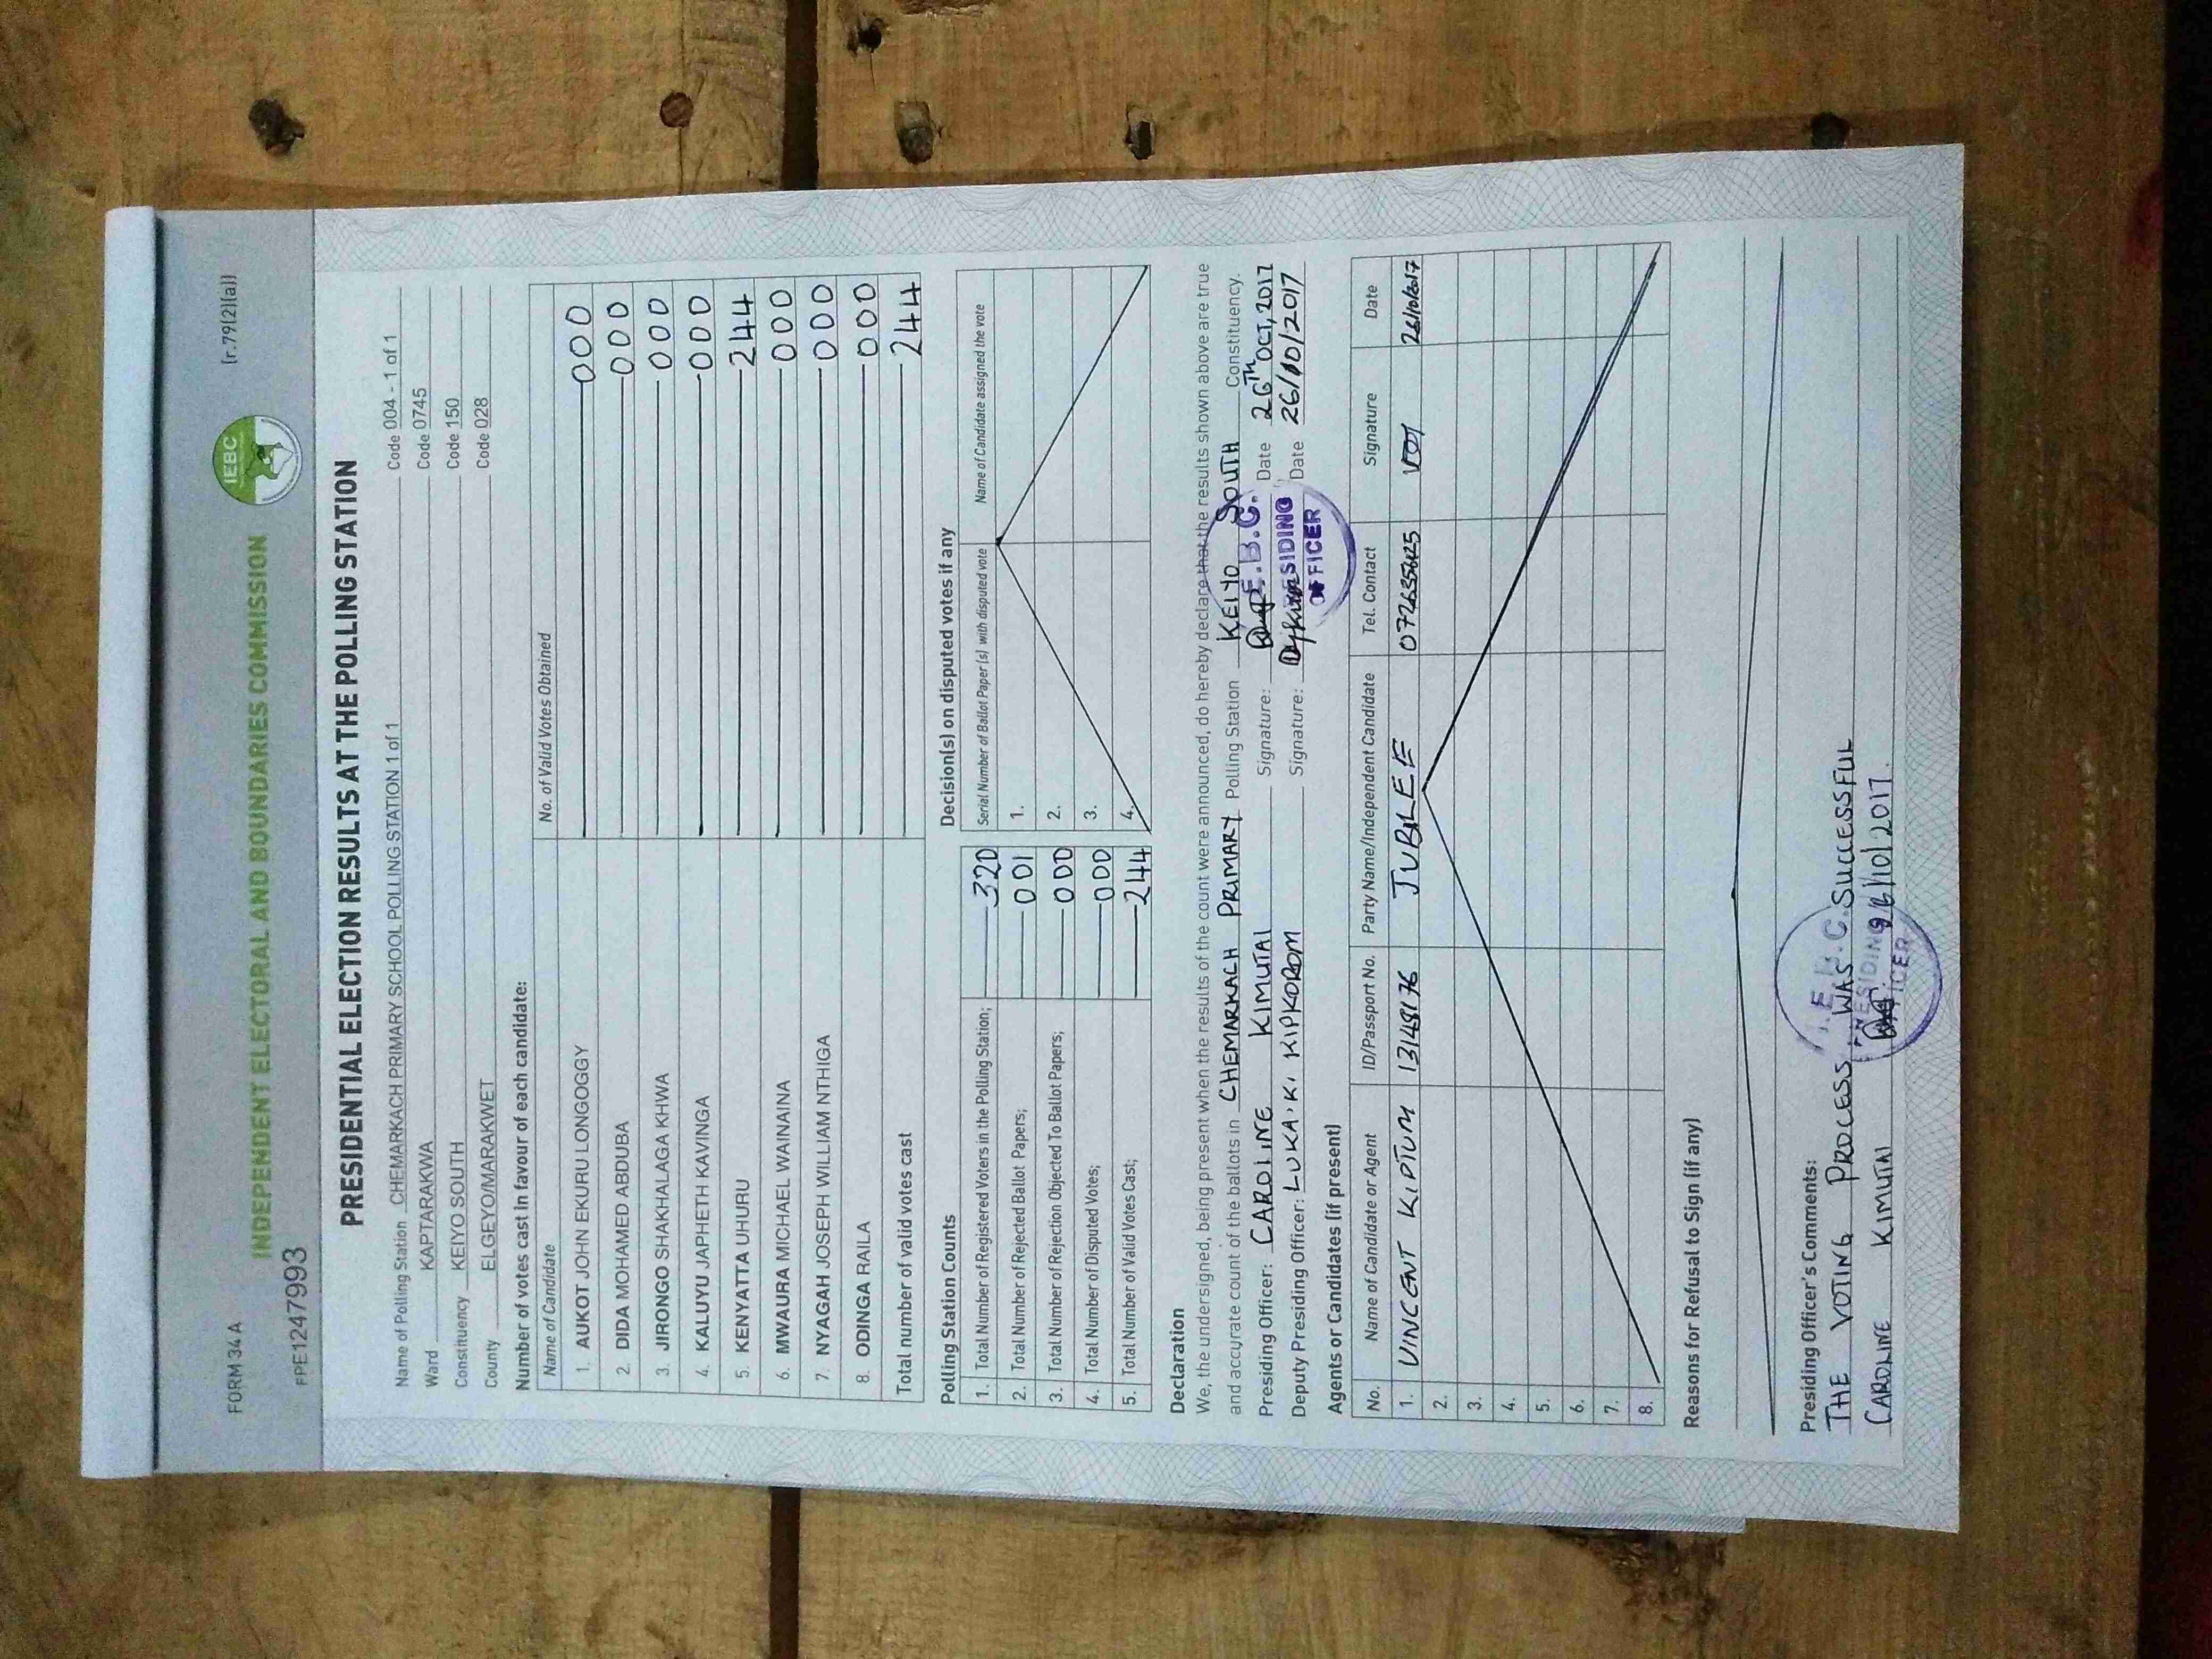 FORM 34A
[r.79(2)(a)]
IEBC
INDEPENDENT ELECTORAL AND BOUNDARIES COMMISSION
FPE1247993
PRESIDENTIAL ELECTION RESULTS AT THE POLLING STATION
Name of Polling Station CHEMARKACH PRIMARY SCHOOL POLLING STATION 1 of 1 Code 004 - 1 of 1
Ward KAPTARAKWA Code 0745
Constituency KEIYO SOUTH Code 150
County ELGEYO/MARAKWET Code 028
Number of votes cast in favour of each candidate:
Name of Candidate No. of Valid Votes Obtained
1. AUKOT JOHN EKURU LONGOGGY 000
2. DIDA MOHAMED ABDUBA 000
3. JIRONGO SHAKHALAGA KHWA 000
4. KALUYU JAPHETH KAVINGA 000
5. KENYATTA UHURU 244
6. MWAURA MICHAEL WAINAINA 000
7. NYAGAH JOSEPH WILLIAM NTHIGA 000
8. ODINGA RAILA 000
Total number of valid votes cast 244
Polling Station Counts
1. Total Number of Registered Voters in the Polling Station; 320
2. Total Number of Rejected Ballot Papers; 001
3. Total Number of Rejection Objected To Ballot Papers; 000
4. Total Number of Disputed Votes; 000
5. Total Number of Valid Votes Cast; 244
Decision(s) on disputed votes if any
Serial Number of Ballot Paper(s) with disputed vote Name of Candidate assigned the vote
1.
2.
3.
4.
Declaration
We, the undersigned, being present when the results of the count were announced, do hereby declare that the results shown above are true
and accurate count of the ballots in CHEMARKACH PRIMARY Polling Station KEIYO SOUTH Constituency.
Presiding Officer: CAROLINE KIMUTAI Signature: Date 26TH OCT, 2017
Deputy Presiding Officer: LUKA K. KIPKOROM Signature: Date 26/10/2017
I.E.B.C.
PRESIDING
OFFICER
Agents or Candidates (if present)
No. Name of Candidate or Agent ID/Passport No. Party Name/Independent Candidate Tel. Contact Signature Date
1. VINCENT KIPTUM 13148176 JUBILEE 26/10/2017
2.
3.
4.
5.
6.
7.
8.
Reasons for Refusal to Sign (if any)
Presiding Officer's Comments:
THE VOTING PROCESS WAS SUCCESSFUL
CAROLINE KIMUTAI 26/10/2017.
I.E.B.C.
PRESIDING
OFFICER